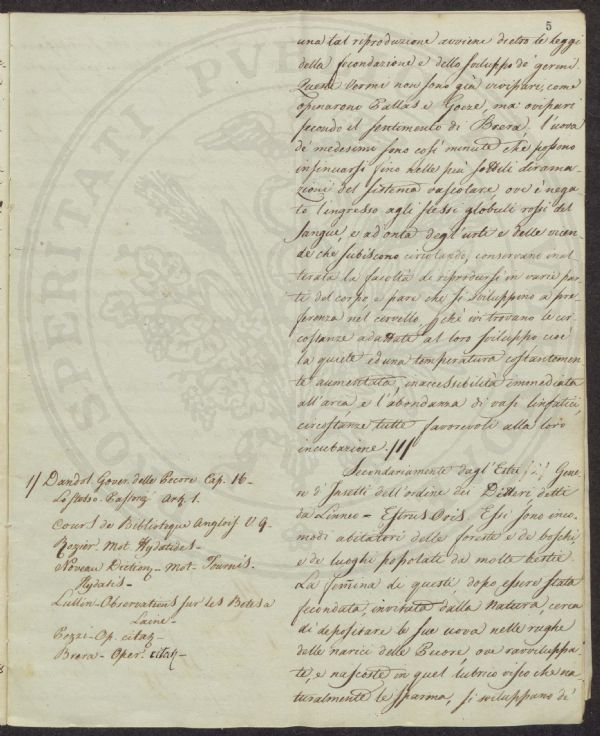 5
una tal riproduzione avviene dietro le leggi
della fecondazione e dello sviluppo de germi
Questi Vermi non sono già vivipari, come
opinarono Pallas e Goeze, ma ovipari
secondo il sentimento di Brera, l'uova
de' medesimi sono così minute che possono
insinuarsi fino nelle più sottili dirama-
zioni del sistema vascolare, ove è nega-
to l'ingresso agli stessi globuli rossi del
sangue, e ad onta degl'urti e delle vicen-
de che subiscono circolando, conservano inal-
terata la facoltà di riprodursi in varie par-
ti del corpo e pare che si sviluppano a pre-
ferenza nel cervello, p chè ivi trovano le cir-
costanze adattate al loro sviluppo cioè
la quiete ed una temperatura costantemen-
te aumentata, inaccessibilità immediata
all'area e l'abondanza di vasi linfatici,
circostanze tutte favorevoli alla loro
incubazione. /1/
Secondariamente dagl'Estri /2/ Gene-
re d'Insetti dell'ordine dei Ditteri detti
da Linneo - Estrus Ovis. Essi sono inco-
modi abitatori delle foreste e de boschi
e de luoghi popolati da molte bestie
La femina di questi dopo essere stata
fecondata, invitata dalla Natura, cerca
di depositare le sue uova nelle rughe
delle narici delle Pecore, ove ravviluppa-
te, e nascoste in quel lubrico visco che na-
turalmente le sparma, si sviluppano di
1/ Dandol. Gover. delle Pecore Cap. 16-
Lo stesso - Pastoriz Art. 1.
Cours de Biblioteque Angloise V 9-
Rozier. Mot. Hydatides-
Noveau Diction- Mot- Tournis.
Hydatis-
Lullin- Observations sur les Betes a
Laine-
Pozzi- Op. citaz-
Brera- Oper. citaz-